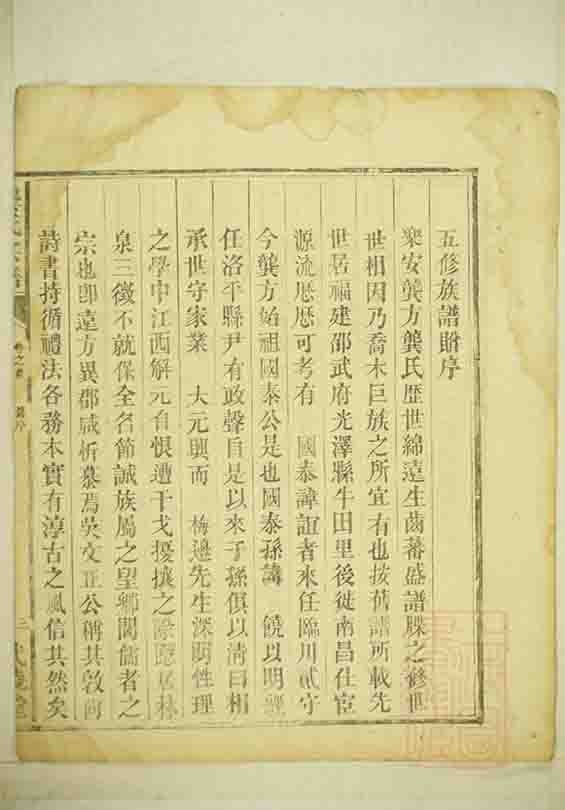 五修族譜贈序
崇安龔方龔氏歷世綿遠生齒蕃盛譜牒之修世
世相因乃喬木巨族之所宜有也按舊譜所載先
世居福建邵武府光澤縣牛田里後徙南昌仕宦
源流歷歷可考有 國泰諱誼者來任臨川貳守
今龔方始祖國泰公是也國泰孫諱 饒以明經
任洛平縣尹有政聲自是以來子孫俱以清白相
承世守家業 大元興而 梅邊先生深明性理
之學中江西解元自恨遭干戈擾攘之際隱居林
泉三徵不就保全名節誠族屬之望鄉閭儒者之
宗也即遠方異郡咸祈慕焉吳文正公稱其敦尚
詩書持循禮法各務本實有淳古之風信其然矣
卷之首
三